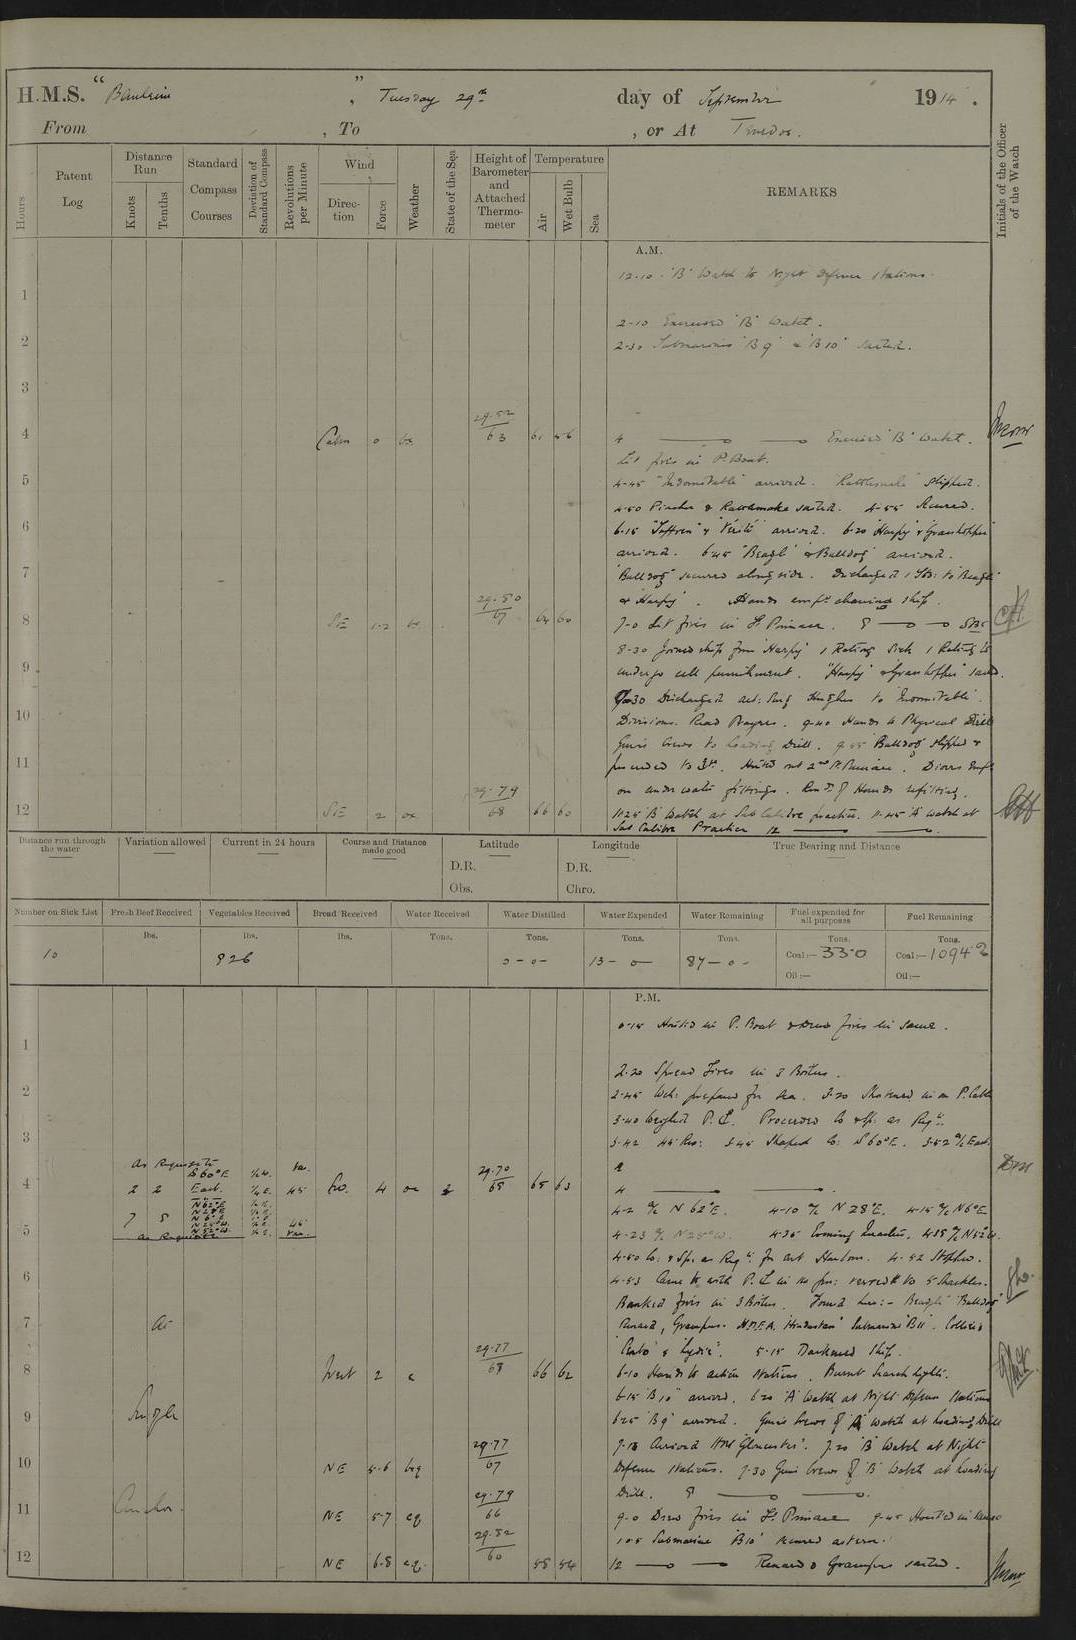 H.M.S. " ", Tuesday 29th day of September 1914.
From , To , or At
Hours
Patent Log
Distance Run
Knots
Tenths
Standard Compass Courses
Deviation of Standard Compass
Revolutions per Minute
Wind
Direction
Force
Weather
State of the Sea
Height of Barometer and Attached Thermometer
Temperature
Air
Wet Bulb
Sea
REMARKS
Initials of the Officer of the Watch
A.M.
12-10 "B" Watch to Night Defence Stations.
1
2-10 Exercised "B" Watch.
2
2-30 Submarines "B9" & "B10" sailed.
3
4 Calm 0 29.52 63 61 56 4 Exercised "B" Watch.
Lit fires in P. Boat.
5 4-45 "Indomitable" arrived. "Rattlesnake" slipped.
4-50 Pincher & Rattlesnake sailed. 4-55 Secured.
6 6-15 "Suffren" & "Vérité" arrived. 6-20 "Harpy" & "Grasshopper"
arrived. 6-45 "Beagle" & "Bulldog" arrived.
7 "Bulldog" secured alongside. Discharged 1 to "Beagle"
& "Harpy". Hands empd cleaning ship.
8 SE 1-2 29.80 67 64 60 7-0 Lit fires in St. Pinnace. 8
8-30 Joined ship from "Harpy" 1 Rating Sick 1 Rating to
9 undergo cell punishment. "Harpy" & "Grasshopper" sailed.
Discharged act: Hughes to "Indomitable".
10 Divisions. Read Prayers. 9-40 Hands to Physical Drill
Gun's Crews to Loading Drill. 9-55 "Bulldog" slipped &
11 proceeded to Hoisted out 2nd Pinnace. Divers empd
on under water fittings. Remdr of Hands refitting.
12 SE 2 29.79 68 66 60 11-25 "B" Watch at Sub Calibre practice. 11-45 "A" Watch at
Sub Calibre Practice 12
Distance run through the water
Variation allowed
Current in 24 hours
Course and Distance made good
Latitude
D.R.
Obs.
Longitude
D.R.
Chro.
True Bearing and Distance
Number on Sick List
Fresh Beef Received
Vegetables Received
Bread Received
Water Received
Water Distilled
Water Expended
Water Remaining
Fuel expended for all purposes
Fuel Remaining
lbs. lbs. lbs. Tons. Tons. Tons. Tons. Tons. Tons.
10 926 0-0- 13-0 87-0- Coal:- 33-0 Coal:- 1094
Oil:- Oil:-
P.M.
0-15 Hoisted in P. Boat & drew fires in same.
1
2-20 Spread Fires in 3 Boilers.
2 2-45 Wch: prepared for sea. 3-20 Shortened in on P. Cable
3-40 Weighed P. Proceeded Co & Sp. as Reqte.
3 3-42 45 Rev: 3-45 Shaped Co: S 60°E. 3-52 a/c East.
As Requisite S 60°E
4 2 2 East. 45 4 29.70 65 65 63 4
N 62°E 4-2 a/c N 62°E. 4-10 a/c N 28°E. 4-15 a/c N 6°E
5 7 8 4-23 a/c N 25°W. 4-35 Evening Quarters. 4-39 a/c N 52°W.
As Requisite 4-50 Co: & Sp: as Reqte for ent Harbour. 4-52 Stopped.
6 4-53 Came to with P. in 10 fms: veered to 5 shackles.
Banked fires in 3 Boilers. Found here:- "Beagle" "Bulldog"
7 At Renard, Grampus. "Hindustan" Submarine "B11". Colliers
& "Lydie". 5-15 Darkened Ship.
8 West 2 c 29.77 68 66 62 6-10 Hands to action Stations. Burnt Search lights.
6-15 "B10" arrived. 6-20 "A" Watch at Night Defence Stations
9 Single 6-25 "B9" arrived. Gun's Crews of "A" watch at Loading Drill
7-15 Arrived HMS "Gloucester". 7-20 "B" Watch at Night
10 NE 5-6 bcq 29.77 67 Defence Stations. 7-30 Guns Crews of "B" Watch at Loading
Drill. 8
11 Anchor. NE 5-7 cq 29.79 66 9-0 Drew fires in St. Pinnace 9-45 Hoisted in same
10-5 Submarine "B10" secured astern.
12 NE 6-8 cq 29.82 60 58 54 12 Renard & Grampus sailed.